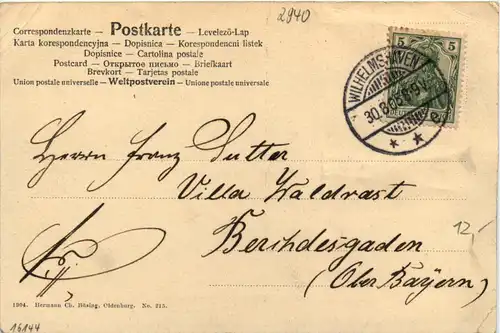 2940
Correspondenzkarte — Postkarte — Levelező-Lap
Karta korespondencyjna — Dopisnica — Korespondencni listek
Dopisnice — Cartolina postale
Postcard — Открытое письмо — Briefkaart
Brevkort — Tarjetas postale
Union postale universelle — Weltpostverein — Unione postale universale
5 5
WILHELMSHAVEN
30.8.
Herrn Franz Sutter
Villa Waldrast
Berchdesgaden
(Ober Bayern)
12,-
1904. Hermann Ch. Büsing, Oldenburg. No. 215.
16144